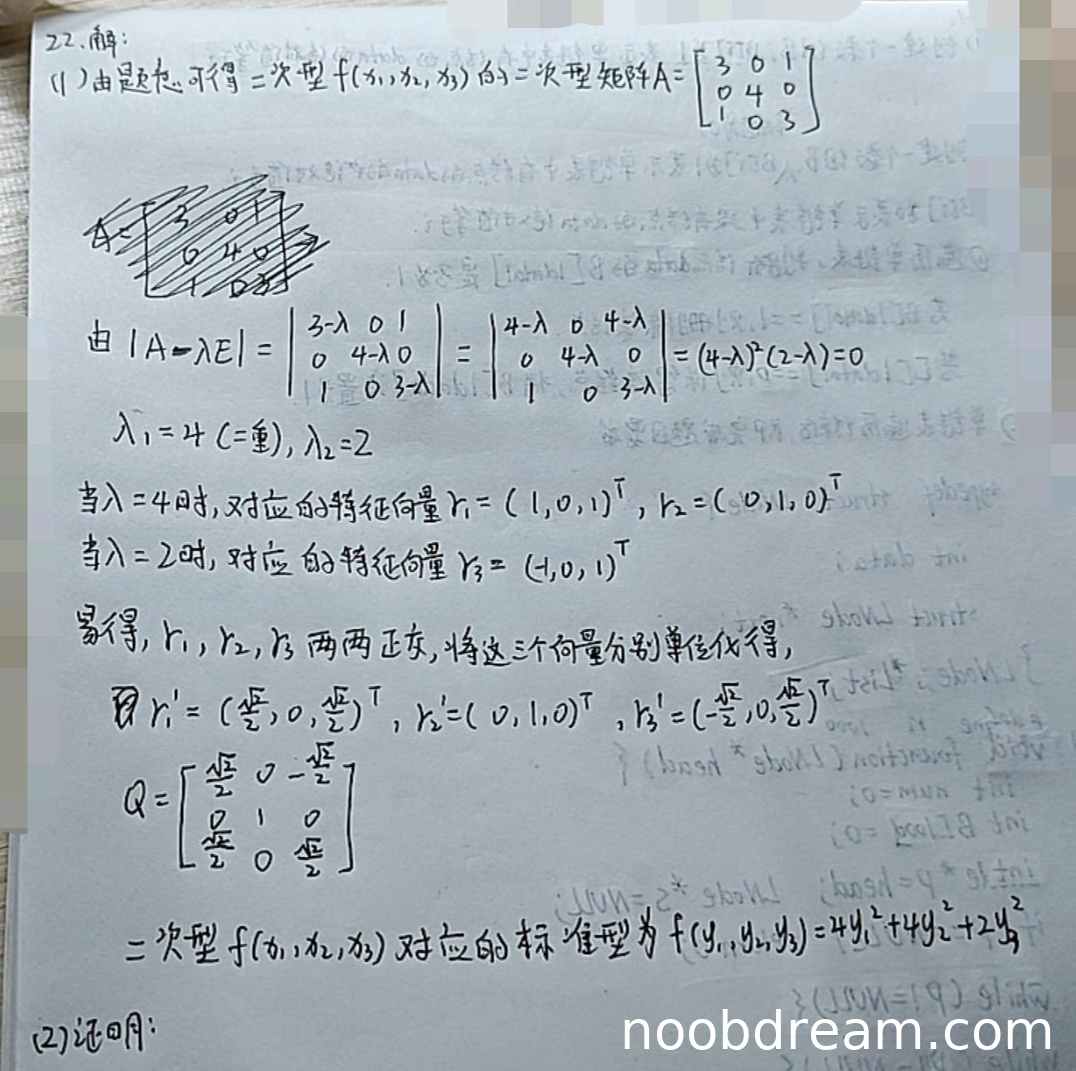 22.解:
(1)由题意可得二次型f(x₁,x₂,x₃)的二次型矩阵A=[3 0 1
0 4 0
1 0 3]
A=[3 0 1
0 4 0
1 0 3]
由|A-λE|=|3-λ 0 1; 0 4-λ 0; 1 0 3-λ|=|4-λ 0 4-λ; 0 4-λ 0; 1 0 3-λ|=(4-λ)²(2-λ)=0
λ₁=4(二重),λ₂=2
当λ=4时,对应的特征向量r₁=(1,0,1)ᵀ,r₂=(0,1,0)ᵀ
当λ=2时,对应的特征向量r₃=(-1,0,1)ᵀ
易得,r₁,r₂,r₃两两正交,将这三个向量分别单位化得,
r₁'=(√2/2,0,√2/2)ᵀ,r₂'=(0,1,0)ᵀ,r₃'=(-√2/2,0,√2/2)ᵀ
Q=[√2/2 0 -√2/2
0 1 0
√2/2 0 √2/2]
二次型f(x₁,x₂,x₃)对应的标准型为f(y₁,y₂,y₃)=4y₁²+4y₂²+2y₃²
(2)证明:
noobdream.com